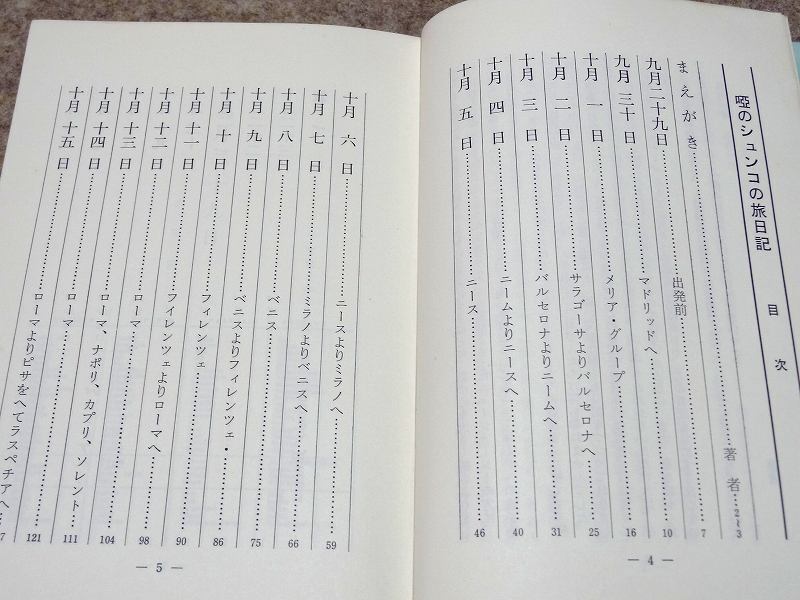 啞のシュンコの旅日記 目次
まえがき…………著者…2〜3
九月二十九日…………出発前…………7
九月三十日…………マドリッドへ…………10
十月一日…………メリア・グループ…………16
十月二日…………サラゴーサよりバルセロナへ…………25
十月三日…………バルセロナよりニームへ…………31
十月四日…………ニームよりニースへ…………40
十月五日…………ニース…………46
— 4 —
十月六日…………ニースよりミラノへ…………59
十月七日…………ミラノよりベニスへ…………66
十月八日…………ベニス…………75
十月九日…………ベニスよりフィレンツェ・…………86
十月十日…………フィレンツェ…………90
十月十一日…………フィレンツェよりローマへ…………98
十月十二日…………ローマ…………104
十月十三日…………ローマ、ナポリ、カプリ、ソレント…………111
十月十四日…………ローマ…………121
十月十五日…………ローマよりピサをへてラスペチアへ…
— 5 —